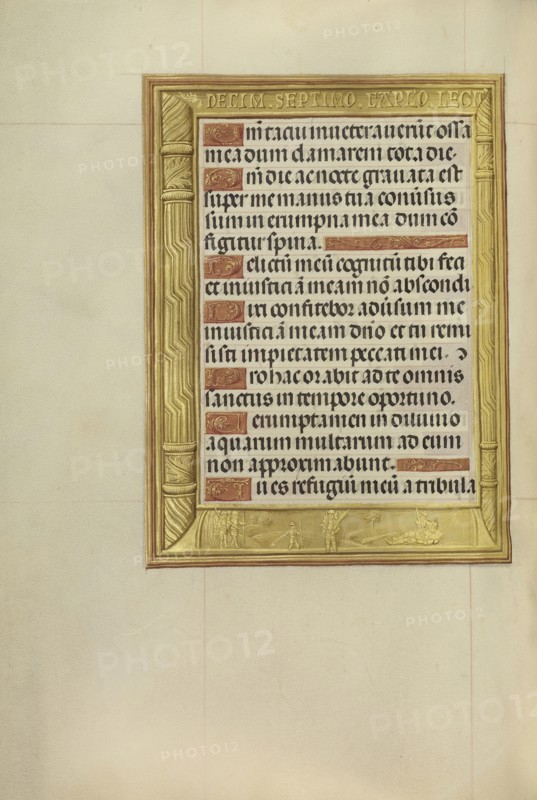 DECIM. SEPTIMO. CAPLO. LECT
Qm̄ tacui inveteraverūt ossa
mea dum clamarem tota die.
Qm̄ die ac nocte gravata est
super me manus tua conversus
sum in erumpna mea dum cō
figitur spina.
Delictū meū cognitū tibi feci
et iniusticiā meam nō abscondi
Dixi confitebor adversum me
iniusticiā meam dn̄o et tu remi
sisti impietatem peccati mei.
Pro hac orabit ad te omnis
sanctus in tempore oportuno.
Verumptamen in diluvio
aquarum multarum ad eum
non approximabunt.
Tu es refugiū meū a tribula
PHOTO12